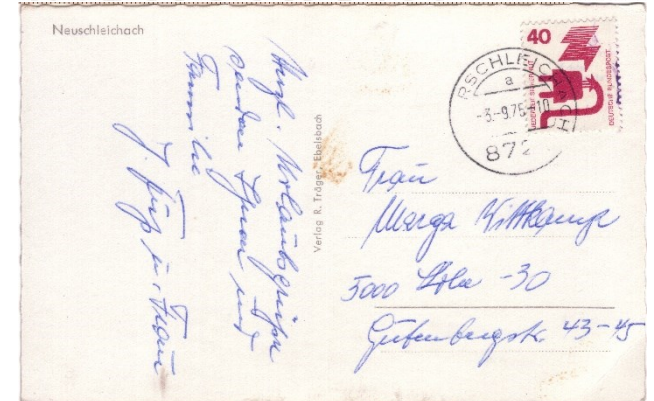 Neuschleichach
Herzl. Urlaubsgrüße
senden Ihnen und
Familie
J. und Frau
Verlag R. Träger, Ebelsbach
40
DEUTSCHE BUNDESPOST
RSCHLEICHACH
a
-3.-9.75-10
872
Frau
Marga Kittkamp
5000 Köln -30
Gutenbergstr. 43-45